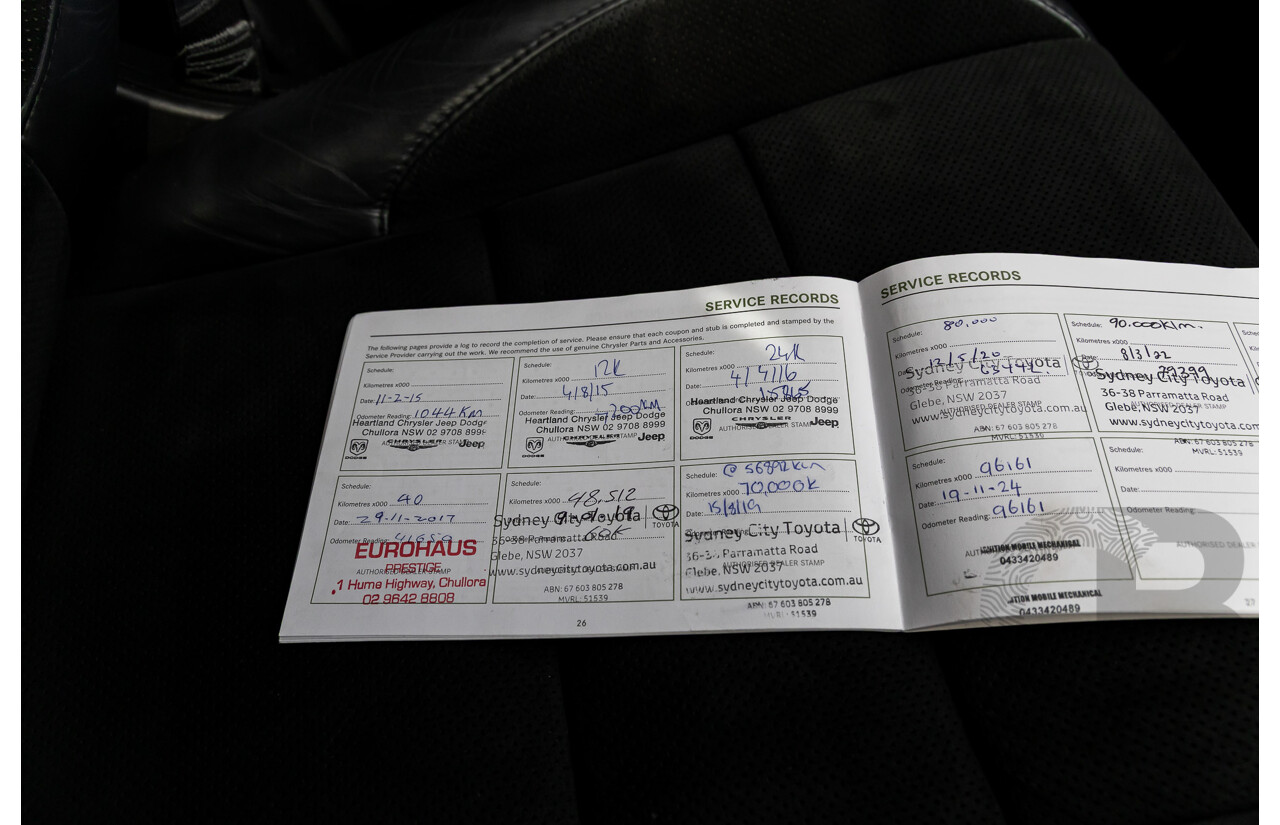 SERVICE RECORDS
The following pages provide a log to record the completion of service. Please ensure that each coupon and stub is completed and stamped by the
Service Provider carrying out the work. We recommend the use of genuine Chrysler Parts and Accessories.
Schedule:
Kilometres x000
Date: 11-2-15
Odometer Reading: 1044 KM
Heartland Chrysler Jeep Dodge
Chullora NSW 02 9708 8999
AUTHORISED DEALER STAMP
DODGE
CHRYSLER
Jeep
Schedule: 12K
Kilometres x000
Date: 4/8/15
Odometer Reading:
Heartland Chrysler Jeep Dodge
Chullora NSW 02 9708 8999
AUTHORISED DEALER STAMP
DODGE
CHRYSLER
Jeep
Schedule: 24K
Kilometres x000
Date: 4/4/16
Heartland Chrysler Jeep Dodge
Chullora NSW 02 9708 8999
CHRYSLER
AUTHORISED DEALER STAMP
DODGE
Jeep
Schedule:
Kilometres x000 40
Date: 29-11-2017
Odometer Reading:
EUROHAUS
PRESTIGE
AUTHORISED DEALER STAMP
1 Hume Highway, Chullora
02 9642 8808
Schedule:
Kilometres x000 48,512
Sydney City Toyota
TOYOTA
36-38 Parramatta Road
Glebe, NSW 2037
www.sydneycitytoyota.com.au
ABN: 67 603 805 278
MVRL: 51539
Schedule: @ 56892 km
Kilometres x000 70,000K
Date: 15/8/19
Sydney City Toyota
TOYOTA
Parramatta Road
Glebe, NSW 2037
AUTHORISED DEALER STAMP
www.sydneycitytoyota.com.au
ABN: 67 603 805 278
MVRL: 51539
26
SERVICE RECORDS
Schedule: 80,000
Kilometres x000
12/5/20
Sydney City Toyota
36-38 Parramatta Road
Glebe, NSW 2037
AUTHORISED DEALER STAMP
www.sydneycitytoyota.com.au
ABN: 67 603 805 278
MVRL: 51539
Schedule: 90.000Klm.
Kilometres x000
Date: 8/3/22
Sydney City Toyota
36-38 Parramatta Road
Glebe, NSW 2037
www.sydneycitytoyota.com
ABN: 67 603 805 278
MVRL: 51539
Schedule:
Kilometres x000 96161
Date: 19-11-24
Odometer Reading: 96161
IGNITION MOBILE MECHANICAL
0433420489
IGNITION MOBILE MECHANICAL
0433420489
Schedule:
Kilometres x000
Date:
Odometer Reading:
AUTHORISED DEALER
27